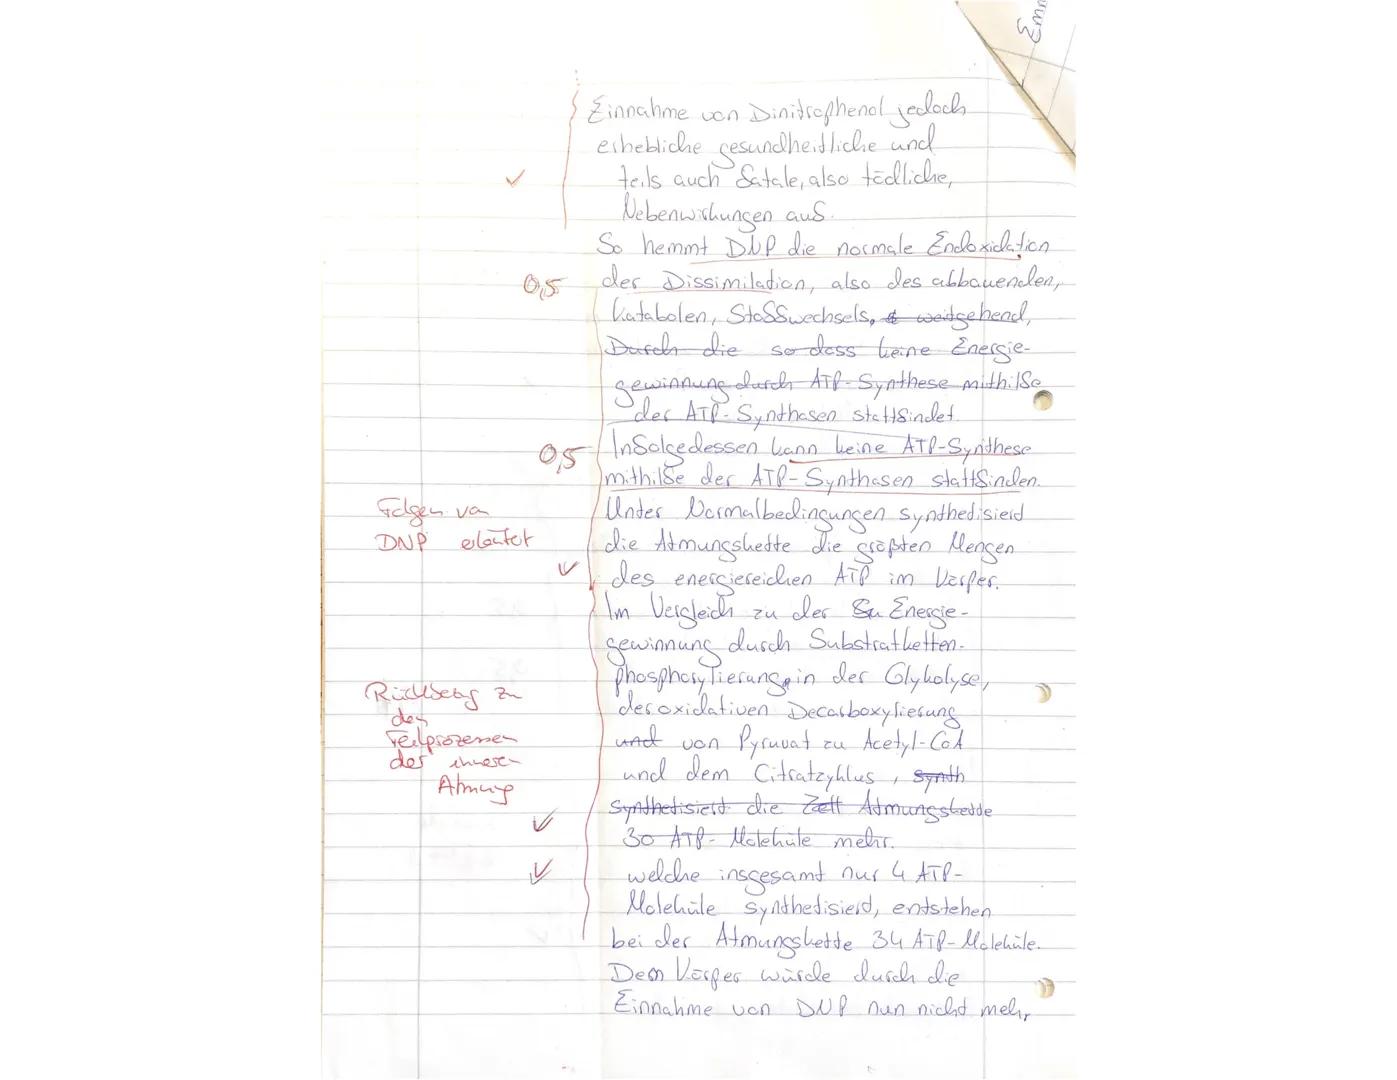 Emm
Einnahme von Dinitrophenol jedoch
erhebliche gesundheitliche und
teils auch fatale, also tödliche,
Nebenwirkungen auf.
So hemmt DNP die normale Endoxidation
0,5 der Dissimilation, also des abbauenden,
katabolen, Stoffwechsels, weitgehend,
Durch die so dass keine Energie-
gewinnung durch ATP-Synthese mithilfe
der ATP-Synthasen stattfindet.
0,5 Infolgedessen kann keine ATP-Synthese
mithilfe der ATP-Synthasen stattfinden.
Folgen von Unter Normalbedingungen synthetisiert
DNP erläutert die Atmungskette die größten Mengen
des energiereichen ATP im Körper.
Im Vergleich zu der En Energie-
gewinnung durch Substratketten-
phosphorylierung in der Glykolyse,
Rückbezug zu der oxidativen Decarboxylierung
den
Teilprozessen und von Pyruvat zu Acetyl-CoA
der inneren und dem Citratzyklus, synth
Atmung synthetisiert die Zell Atmungskette
30 ATP-Moleküle mehr.
welche insgesamt nur 4 ATP-
Moleküle synthetisiert, entstehen
bei der Atmungskette 34 ATP-Moleküle.
Dem Körper würde durch die
Einnahme von DNP nun nicht mehr